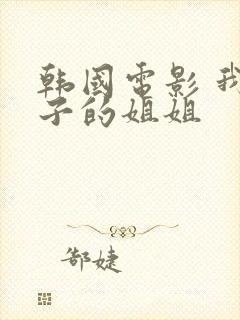 韩国电影 我
子的姐姐
郜婕